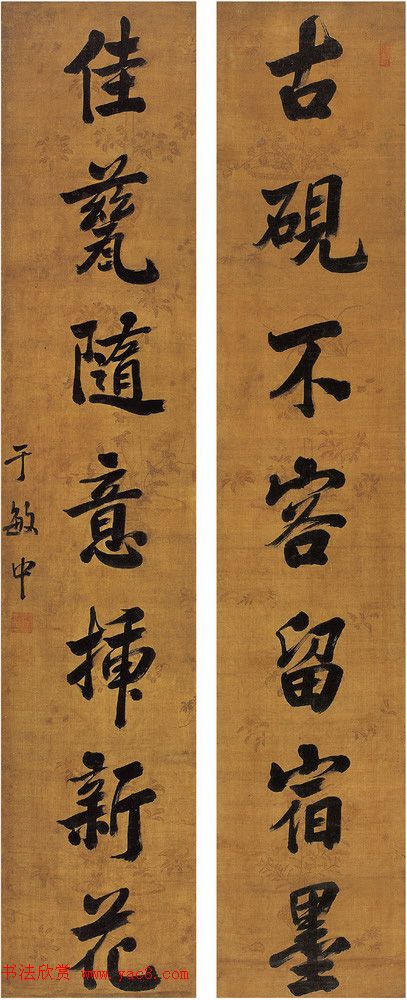 古硯不容留宿墨
佳甆隨意挿新花
于敏中
书法欣赏 www.yac8.com